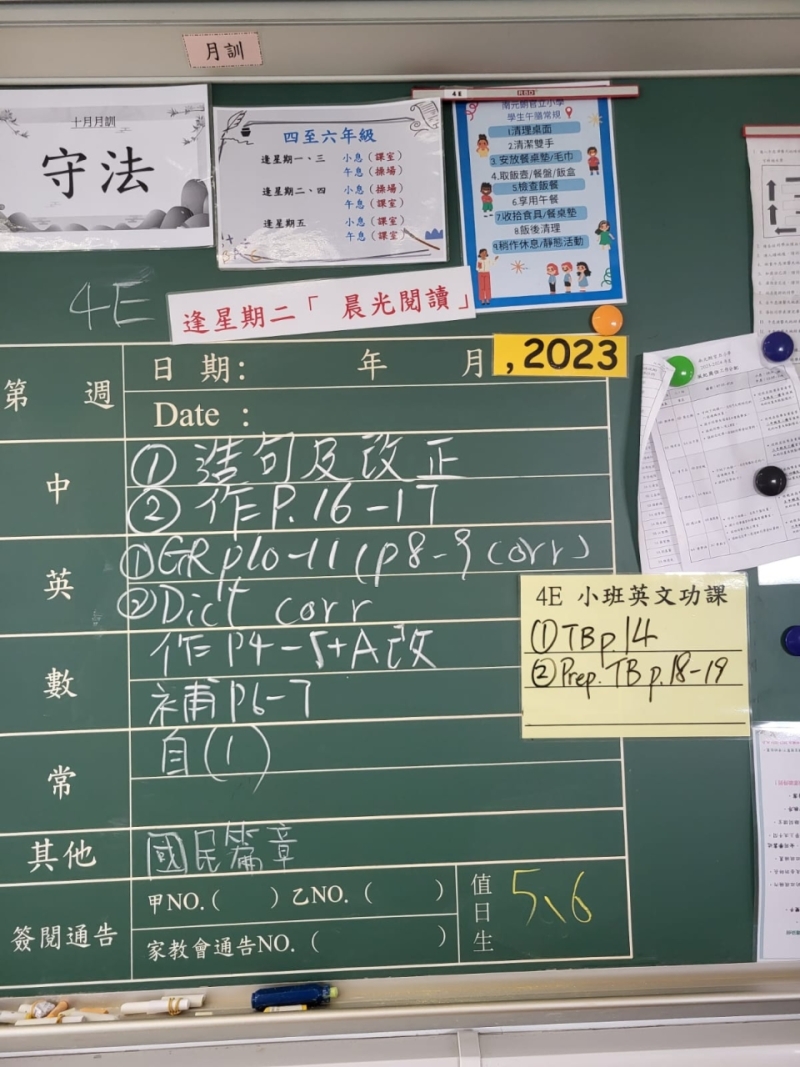 月訓
十月月訓
守法
四至六年級
逢星期一、三 小息（課室）
午息（操場）
逢星期二、四 小息（操場）
午息（課室）
逢星期五 小息（課室）
午息（課室）
4E
南元朗官立小學
學生午膳常規
1清理桌面
2.清潔雙手
3.安放餐桌墊/毛巾
4.取飯壺/餐盤/飯盒
5.檢查飯餐
6.享用午餐
7.收拾食具/餐桌墊
8.飯後清理
9.稍作休息/靜態活動
4E
逢星期二「 晨光閱讀」
第 週
日 期： 年 月 , 2023
Date :
中
① 造句及改正
② 作P.16-17
英
① GR p10-11 (p8-9 corr)
② Dict corr
數
作 P4-5+A改
補P6-7
常
自(1)
其他
國民篇章
簽閱通告
甲NO.( ) 乙NO. ( )
家教會通告NO. ( )
值日生
5、6
4E 小班英文功課
① TB p.14
② Prep. TB p.18-19